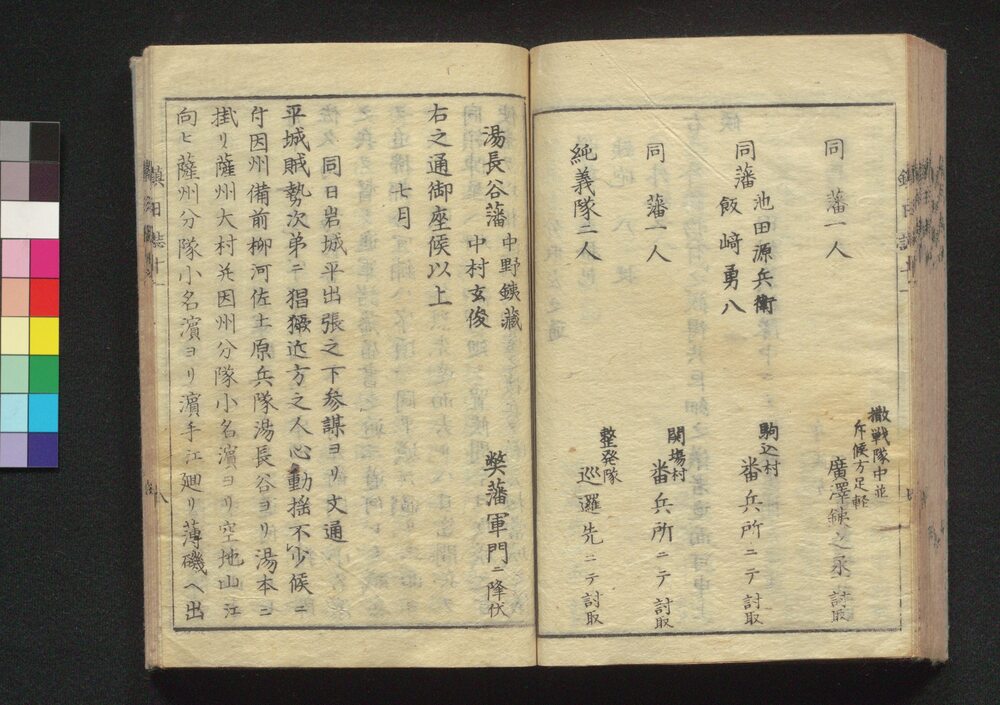 同 藩一人 撒戦隊中並斥候方足軽 廣澤銕之丞討取
同藩 池田源兵衛
飯﨑勇八 駒込村 畨兵所ニテ討取
同 藩一人 関場村 畨兵所ニテ討取
純義隊二人 整発隊 巡邏先ニテ討取
湯長谷藩 中野銕藏
中村玄俊 弊藩軍門ニ降伏
右之通御座候以上
七月
同日岩城平出張之下参謀ヨリ文通
平城賊勢次第ニ猖獗近方之人心動揺不少候ニ
付因州備前柳河佐土原兵隊湯長谷ヨリ湯本ニ
掛リ薩州大村并因州分隊小名濵ヨリ空地山江
向ヒ薩州分隊小名濵ヨリ濵手江廻リ薄磯ヘ出
鎮日誌十
八